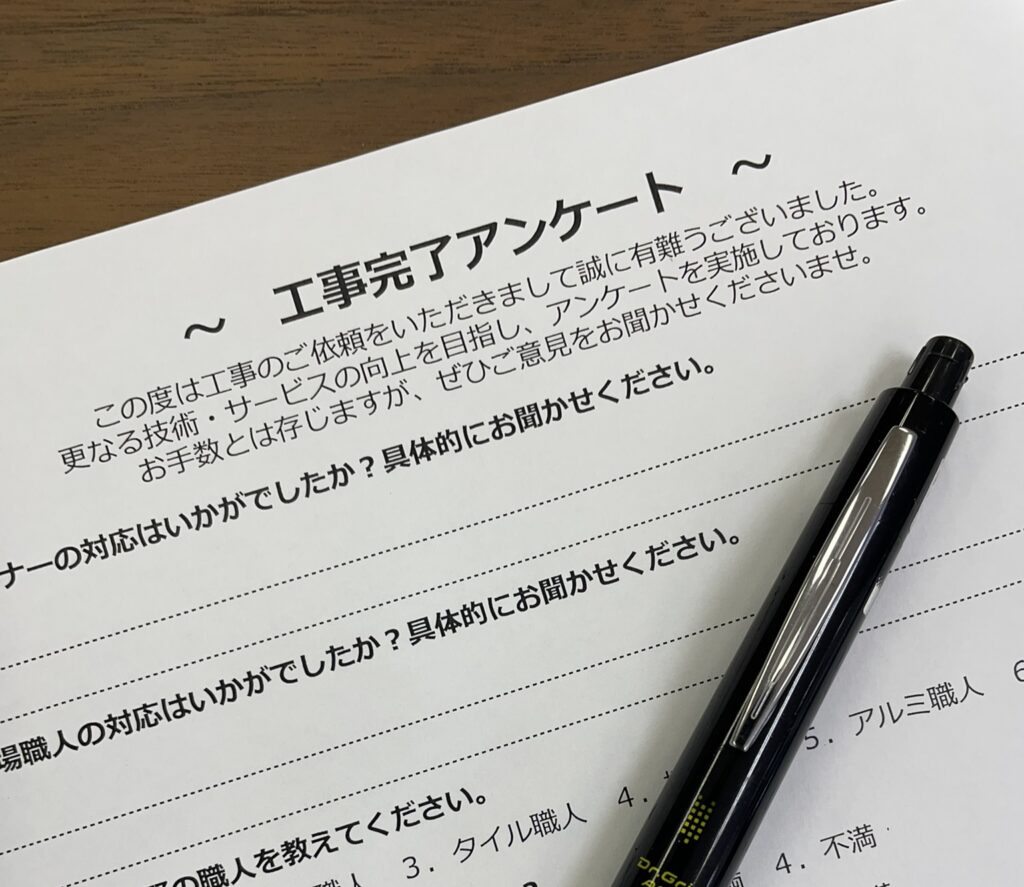 ～　工事完了アンケート　～
この度は工事のご依頼をいただきまして誠に有難うございました。
更なる技術・サービスの向上を目指し、アンケートを実施しております。
お手数とは存じますが、ぜひご意見をお聞かせくださいませ。
ナーの対応はいかがでしたか？具体的にお聞かせください。
場職人の対応はいかがでしたか？具体的にお聞かせください。
の職人を教えてください。
職人　3．タイル職人　4．　5．アルミ職人　6
4．不満